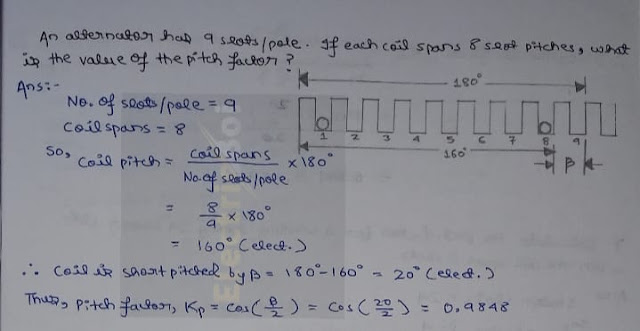 An alternator has 9 slots/pole. If each coil spans 8 slot pitches, what
is the value of the pitch factor?
Ans:-
No. of slots/pole = 9
Coil spans = 8
So, Coil pitch = Coil spans / No. of slots/pole × 180°
= 8/9 × 180°
= 160° (elect.)
∴ Coil is short pitched by β = 180° - 160° = 20° (elect.)
Thus, Pitch factor, Kp = cos(β/2) = cos(20/2) = 0.9848
180°
1 2 3 4 5 6 7 8 9
160°
β